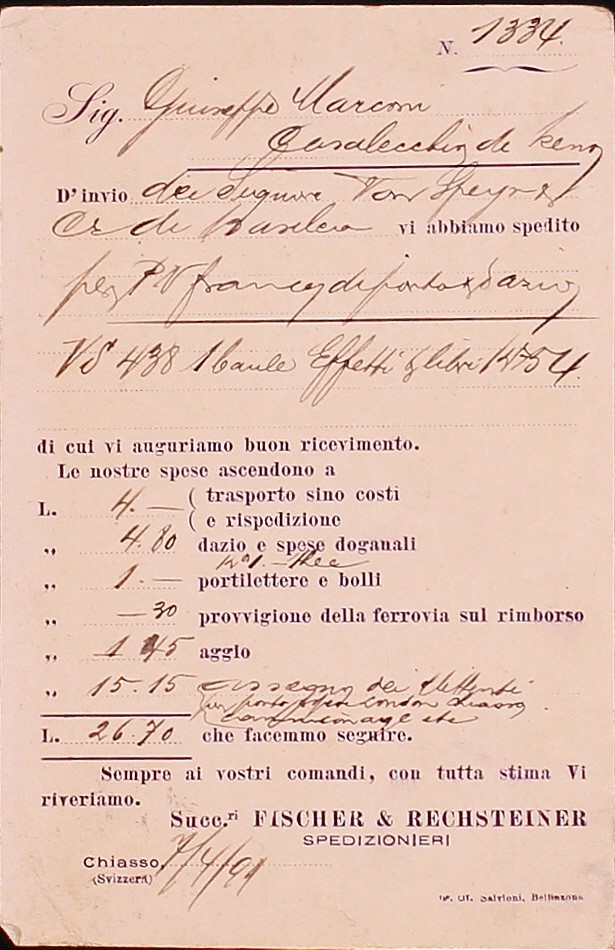 N. 1334.
Sig. Giuseppe Marconi
Casalecchio de Reno
D' invio dei Signori Von Speyr &
Cr di Basilea vi abbiamo spedito
per P V franco di porto & dazio
VS 438 1 baule Effetti & libri K° 54
di cui vi auguriamo buon ricevimento.
Le nostre spese ascendono a
L. 4. — ( trasporto sino costì
( e rispedizione
„ 4.80 dazio e spese doganali
„ 1. — portilettere e bolli
„ — 30 provvigione della ferrovia sul rimborso
„ 1 45 aggio
„ 15.15 assegno dei Mittenti
London
L. 26.70 che facemmo seguire.
Sempre ai vostri comandi, con tutta stima Vi
riveriamo.
Succ.ri FISCHER & RECHSTEINER
SPEDIZIONIERI
Chiasso, 7/4/91
(Svizzera)
Salvioni, Bellinzona